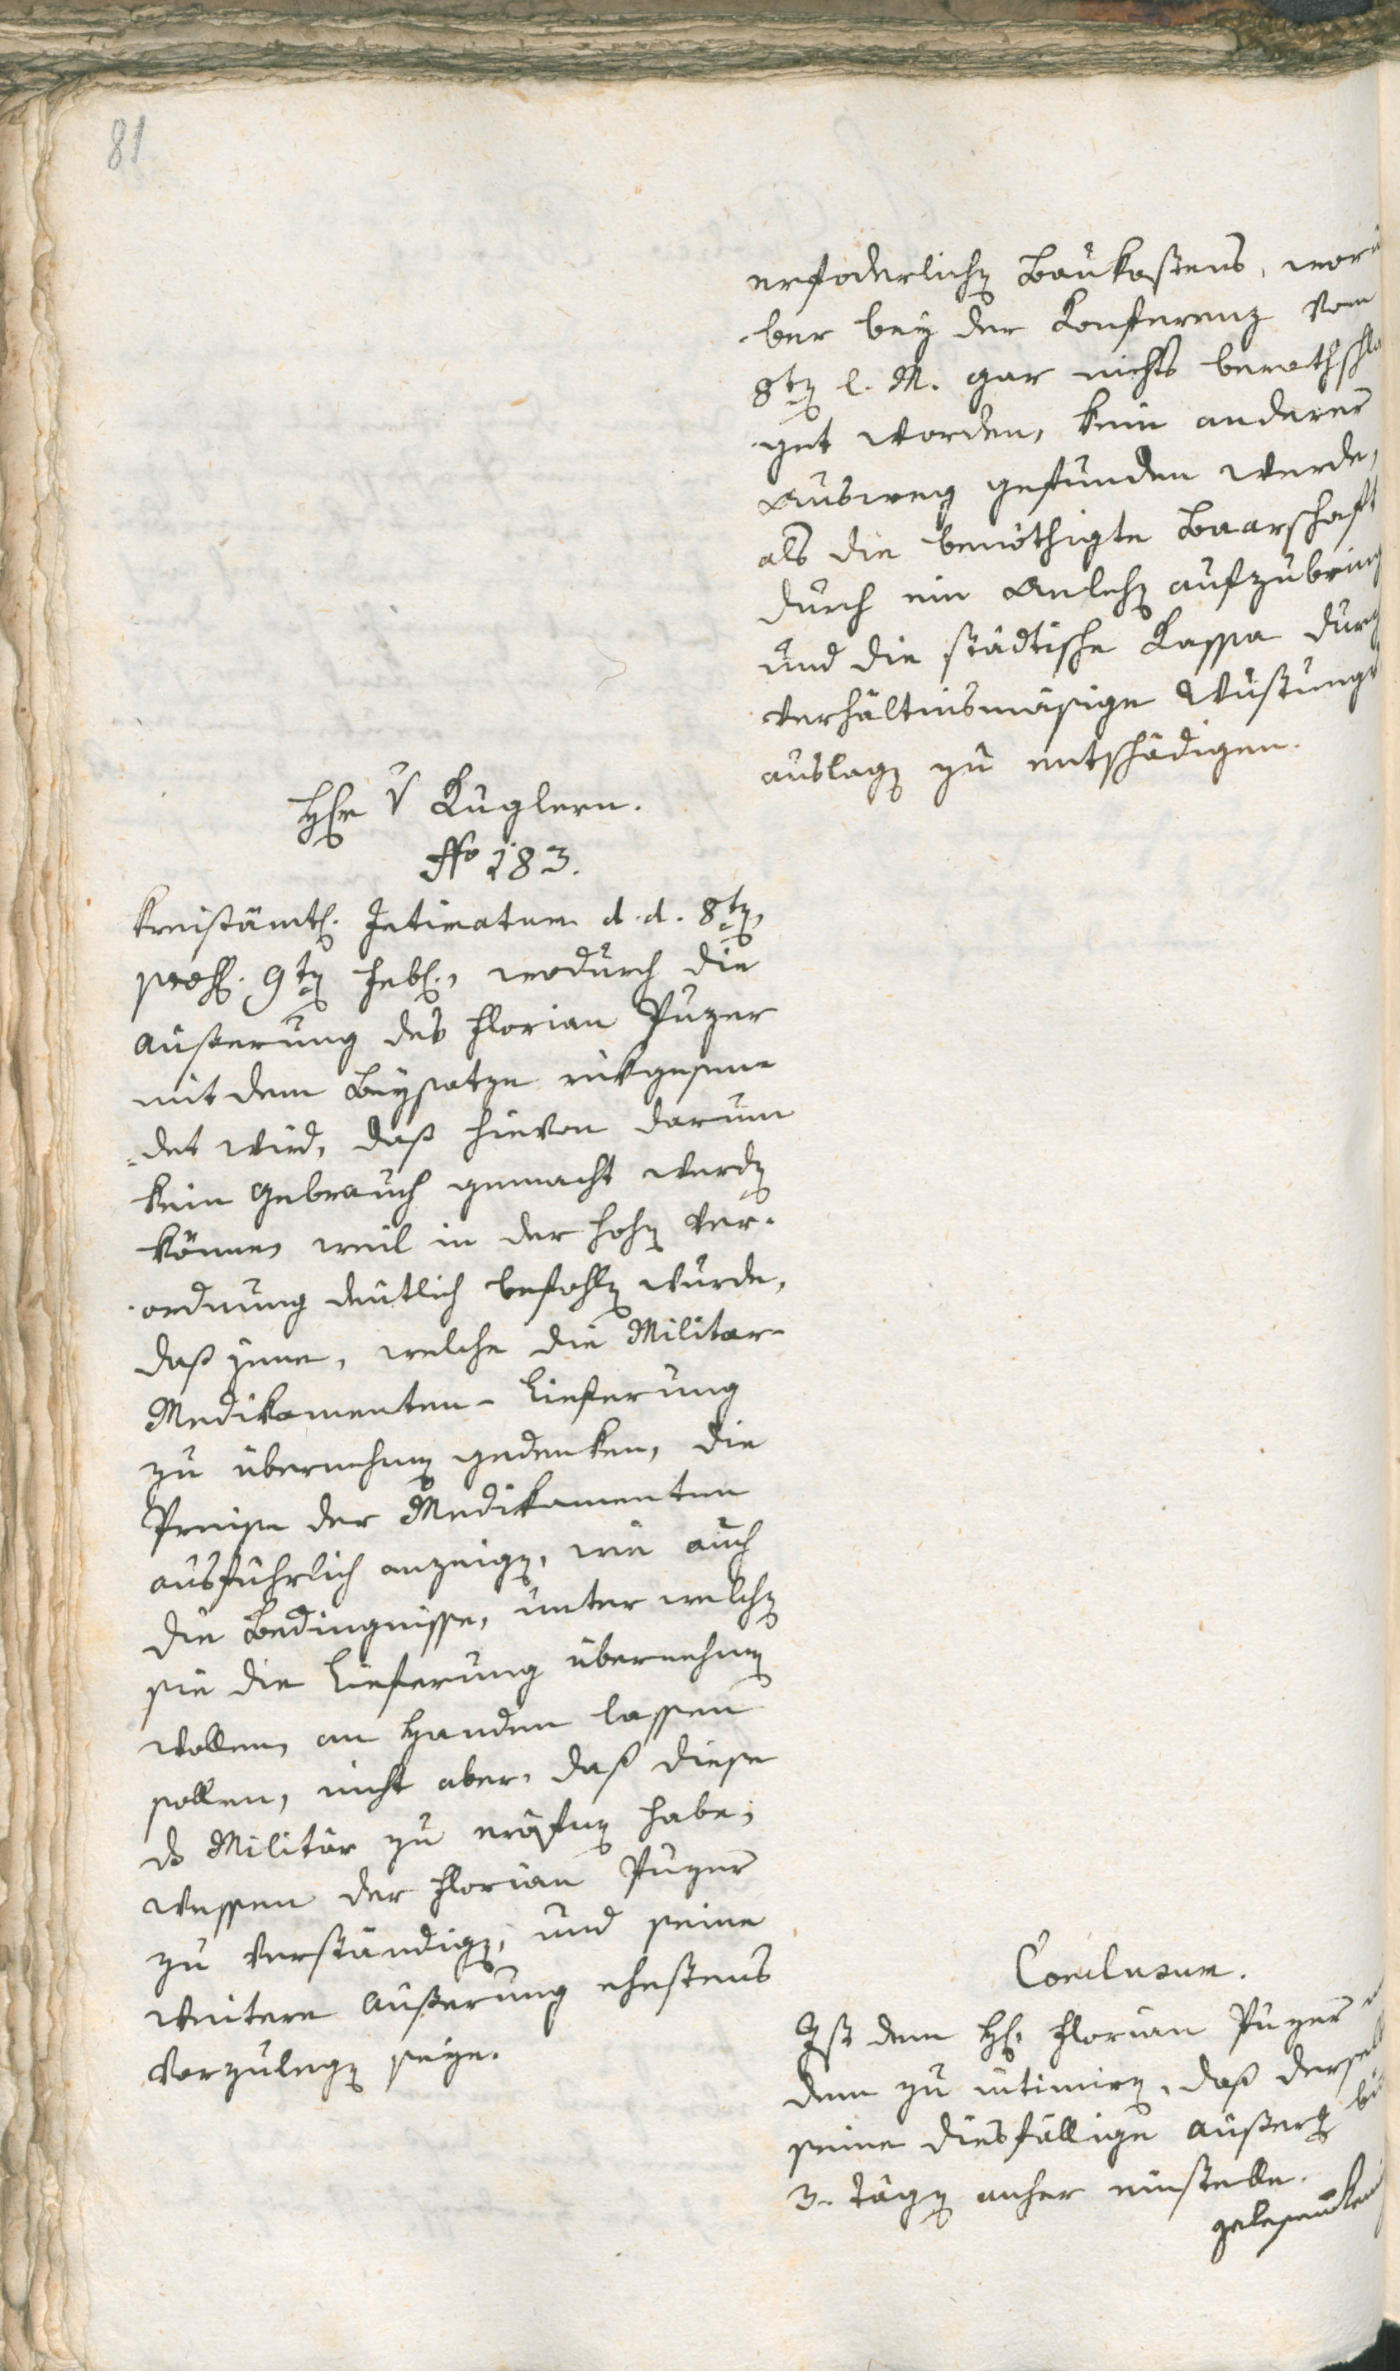 81
erfoderlichen Baukostens, worü
ber bey der Konferenz vom
8ten l. M. gar nichts berathschla
get worden, kein anderer
Ausweg gefunden werde,
als die benöthigte Baarschaft
durch ein Anlehen aufzubring
und die städtische Kassa durch
verhältnismäsige Wustungs
auslagen zu entschädigen.
Hr v Kuglern.
No 183.
Kreisämtl. Intimatum d. d. 8ten,
prs. 9ten Febr., wodurch die
Äußerung des Florian Puzer
mit dem Beysatze rükgesen-
det wird, daß hievon darum
kein Gebrauch gemacht werden
könne, weil in der hohen Ver-
ordnung deutlich befohlen wurde,
daß jene, welche die Militar-
Medikamenten-Lieferung
zu übernehmen gedenken, die
Preise der Medikamenten
ausführlich anzeigen, wie auch
die Bedingnisse, unter welchen
sie die Lieferung übernehmen
wollen, an Handen lassen
sollen, nicht aber, daß diese
ds Militär zu eröfnen habe,
wessen der Florian Puzer
zu verständigen, und seine
weitere Äußerung ehestens
vorzulegen seye.
Conclusum.
Ist dem H. Florian Puzer
dem zu intimiren, daß dersel
seine diesfällige Äußerg bi
3. Tägen anher einstelle.